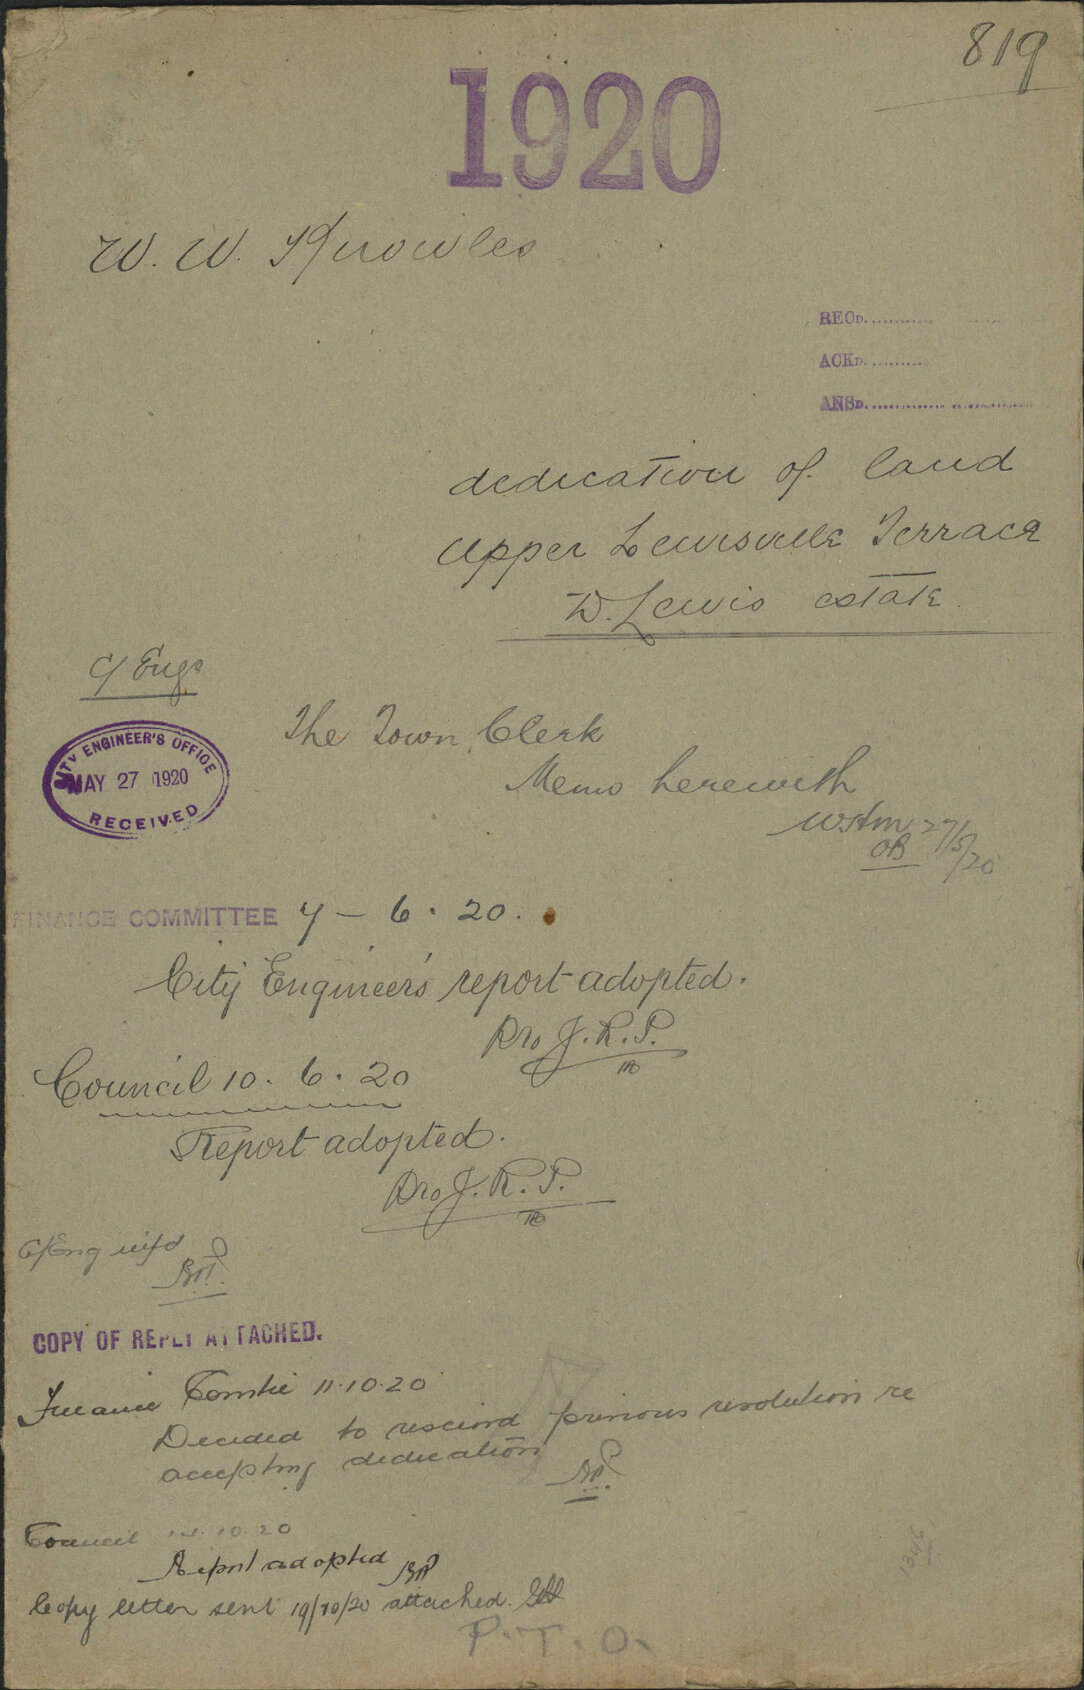 819
1920
W. W. Knowles
RECD.
ACKD.
ANSD.
dedication of land
Upper Lewisville Terrace
W. Lewis estate
C/Engr
CITY ENGINEER'S OFFICE
MAY 27 1920
RECEIVED
The Town Clerk
Memo herewith
27/5/20
FINANCE COMMITTEE 7-6.20.
City Engineer's report adopted.
Pro J.R.P.
Council 10.6.20
Report adopted.
Pro J.R.P.
C/Eng
COPY OF REPLY ATTACHED.
Finance Comtee 11.10.20
Decided to rescind previous resolution re
accepting dedication
Council 10.20
Report adopted
Copy letter sent 19/10/20 attached.
P.T.O.